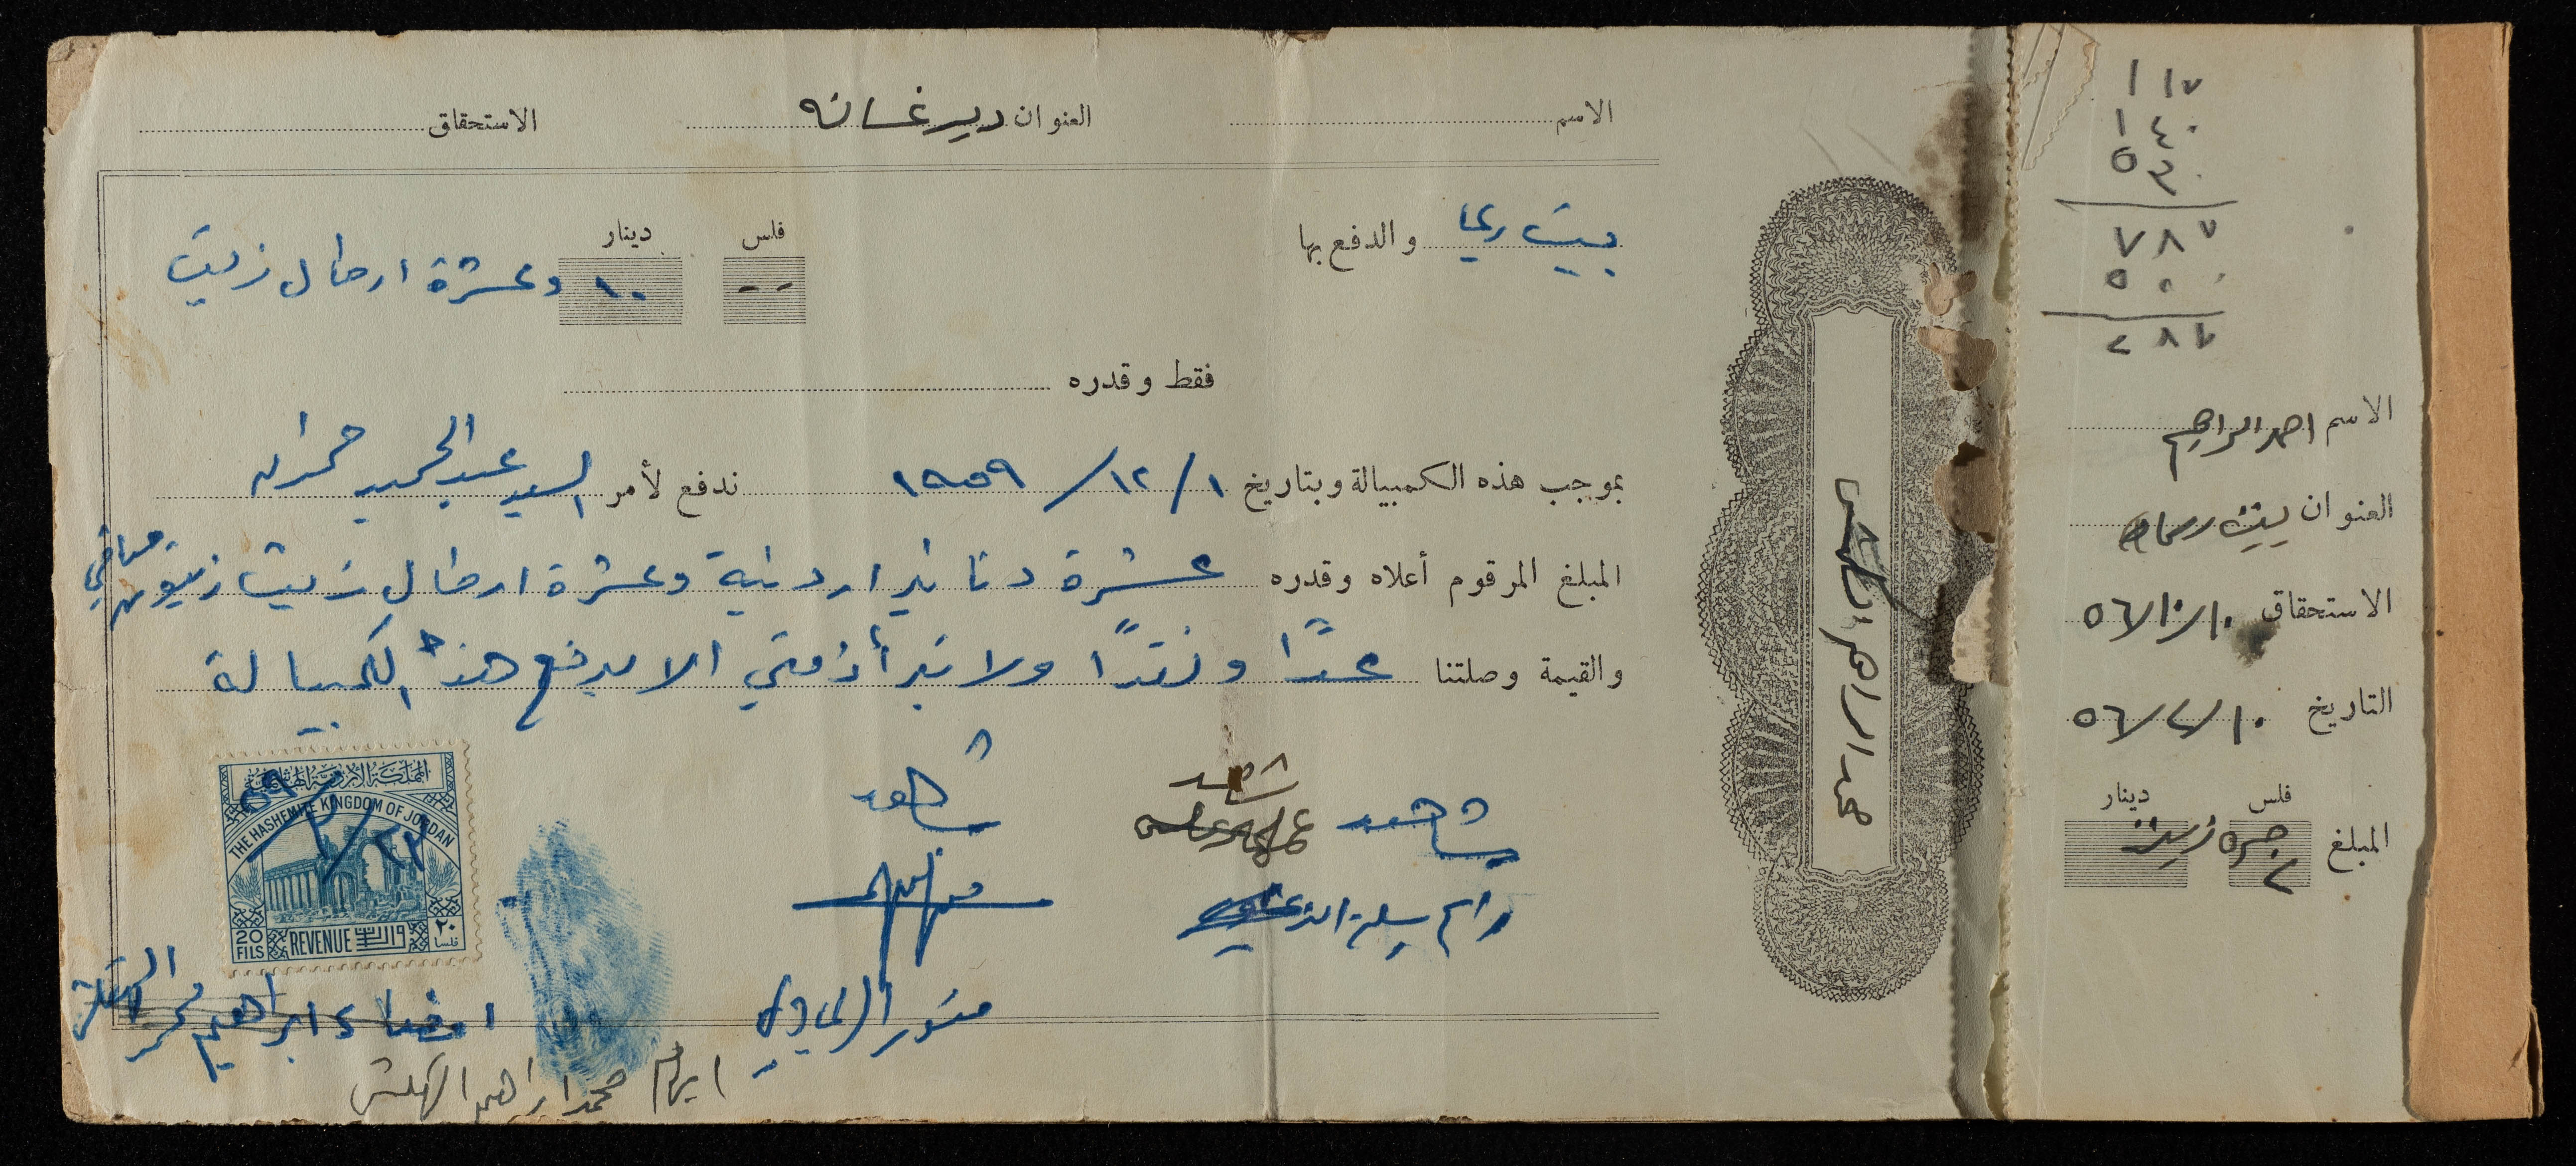 الاسم
العنوان دير غسانه
الاستحقاق
بيت ريما والدفع بها
فلس دينار
-- ١٠ وعشرة ارطال زيت
فقط وقدره
بموجب هذه الكمبيالة وبتاريخ ١/١٢/١٩٥٩ ندفع لأمر السيد عبد الحميد حمدان
المبلغ المرقوم أعلاه وقدره عشرة دنانير اردنية وعشرة ارطال زيت زيتون صافي
والقيمة وصلتنا عدًا ونقدًا ولا تبرأ ذمتي الا بدفع هذه الكمبيالة
شاهد
شاهد
شاهد
منور الريماوي
المملكة الأردنية الهاشمية
THE HASHEMITE KINGDOM OF JORDAN
20 FILS
REVENUE
٢٠ فلسا
امضاء ابراهيم
ابهام محمد ابراهيم
محمد ابراهيم
١١٧
١٤٠
٥٣٠
٧٨٧
٥٠٠
٢٨٧
الاسم احمد ابراهيم
العنوان بيت ريما
الاستحقاق ١٠/١٠/٥٦
التاريخ ١٠/٢/٥٦
فلس دينار
المبلغ ٢ جرة زيت